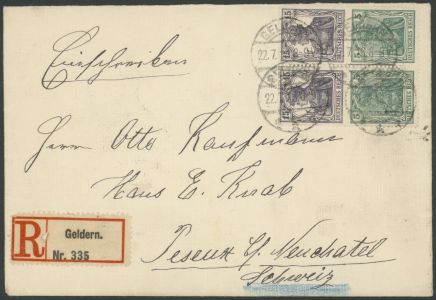 Einschreiben
15
DEUTSCHES REICH
5
DEUTSCHES REICH
15
DEUTSCHES REICH
5
DEUTSCHES REICH
22.7.
Herrn Otto Kaufmann
Hans E. Knab
Peseux b/ Neuchatel
Schweiz
R
Geldern.
Nr. 335